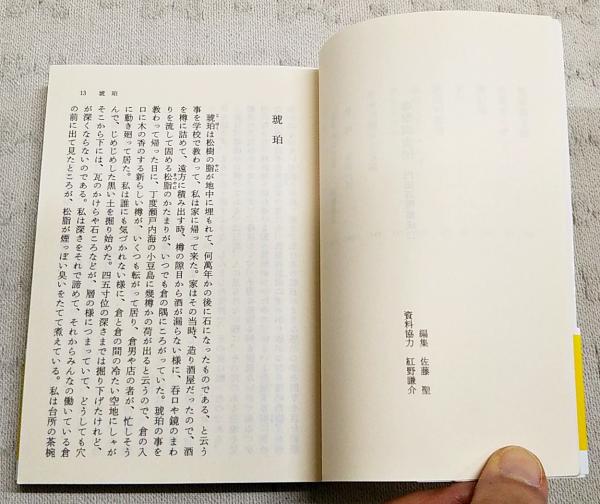 編集 佐藤 聖
資料協力 紅野謙介
13 琥珀
琥珀
琥珀は松樹の脂が地中に埋もれて、何萬年かの後に石になったものである、と云う
事を学校で教わって、私は家に帰って来た。家はその当時、造り酒屋だったので、酒
を樽に詰めて、遠方に積み出す時、樽の隙目から酒が漏らない様に、呑口や鏡のまわ
りを流して固める松脂のかたまりが、いつでも倉の隅にころがっていた。琥珀の事を
教わって帰った日に、丁度瀬戸内海の小豆島に幾樽かの荷が出ると云うので、倉の入
口に木の香のする新らしい樽が、いくつも転がって居り、倉男や店の者が、忙しそう
に動き廻って居た。私は誰にも気づかれない様に、倉と倉の間の冷たい空地にしゃが
んで、じめじめした黒い土を掘り始めた。四五寸位の深さまでは掘り下げたけれど、
そこから下には、瓦のかけらや石ころなどが、層の様につまっていて、どうしても穴
が深くならないのである。私は深さをそれで諦めて、それからみんなの働いている倉
の前に出て見たところが、松脂が煙っぽい臭いをたてて煮えている。私は台所の茶椀